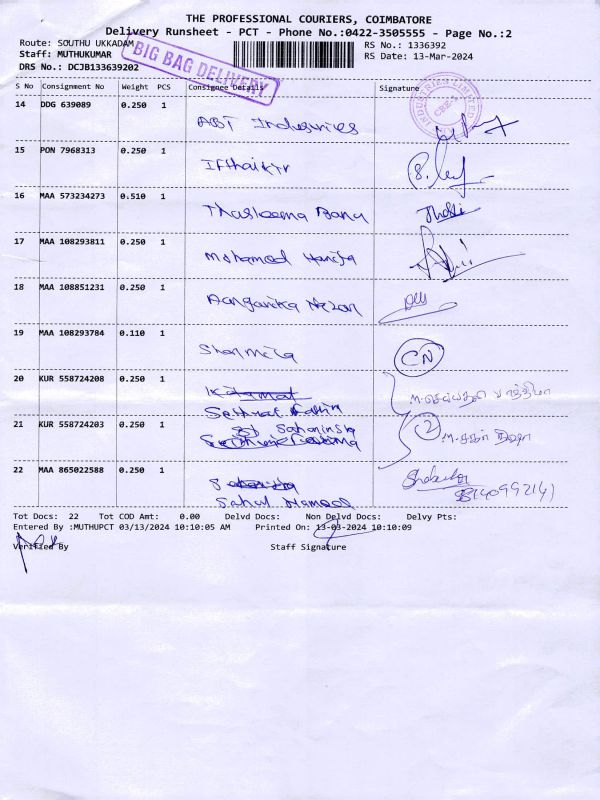 THE PROFESSIONAL COURIERS, COIMBATORE
Delivery Runsheet - PCT - Phone No.:0422-3505555 - Page No.:2
Route: SOUTHU UKKADAM RS No.: 1336392
Staff: MUTHUKUMAR RS Date: 13-Mar-2024
DRS No.: DCJB133639202
BIG BAG DELIVERY
S No Consignment No Weight PCS Consignee Details Signature
14 DDG 639089 0.250 1 ABT Industries
15 PON 7968313 0.250 1
16 MAA 573234273 0.510 1 Thasleema Banu
17 MAA 108293811 0.250 1 Mohamed Hanifa
18 MAA 108851231 0.250 1
19 MAA 108293784 0.110 1 Sharmila CN
20 KUR 558724208 0.250 1
21 KUR 558724203 0.250 1 2
22 MAA 865022588 0.250 1
Sahul Hameed
Tot Docs: 22 Tot COD Amt: 0.00 Delvd Docs: Non Delvd Docs: Delvy Pts:
Entered By :MUTHUPCT 03/13/2024 10:10:05 AM Printed On: 13-03-2024 10:10:09
Verified By Staff Signature